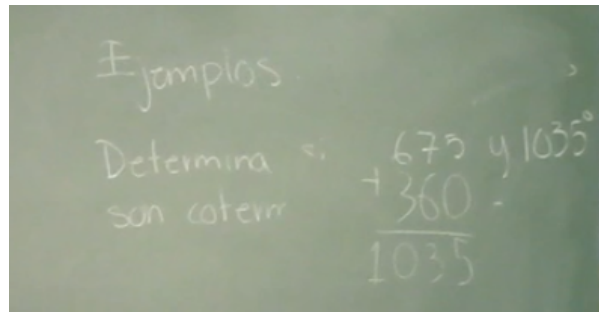 Ejemplos.
Determina si 675 y 1035°
son coterm + 360
1035